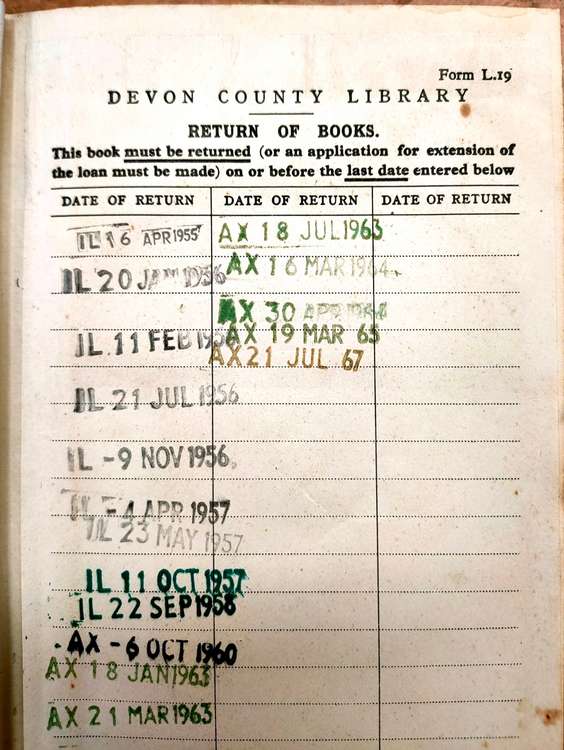 Form L.19
DEVON COUNTY LIBRARY
RETURN OF BOOKS.
This book must be returned (or an application for extension of
the loan must be made) on or before the last date entered below
DATE OF RETURN
IL 16 APR 1955
IL 20 JAN 1956
IL 11 FEB 1956
IL 21 JUL 1956
IL -9 NOV 1956
IL -4 APR 1957
IL 23 MAY 1957
IL 11 OCT 1957
IL 22 SEP 1958
AX -6 OCT 1960
AX 18 JAN 1963
AX 21 MAR 1963
DATE OF RETURN
AX 18 JUL 1963
AX 16 MAR 1964
AX 30 APR 1964
AX 19 MAR 65
AX 21 JUL 67
DATE OF RETURN